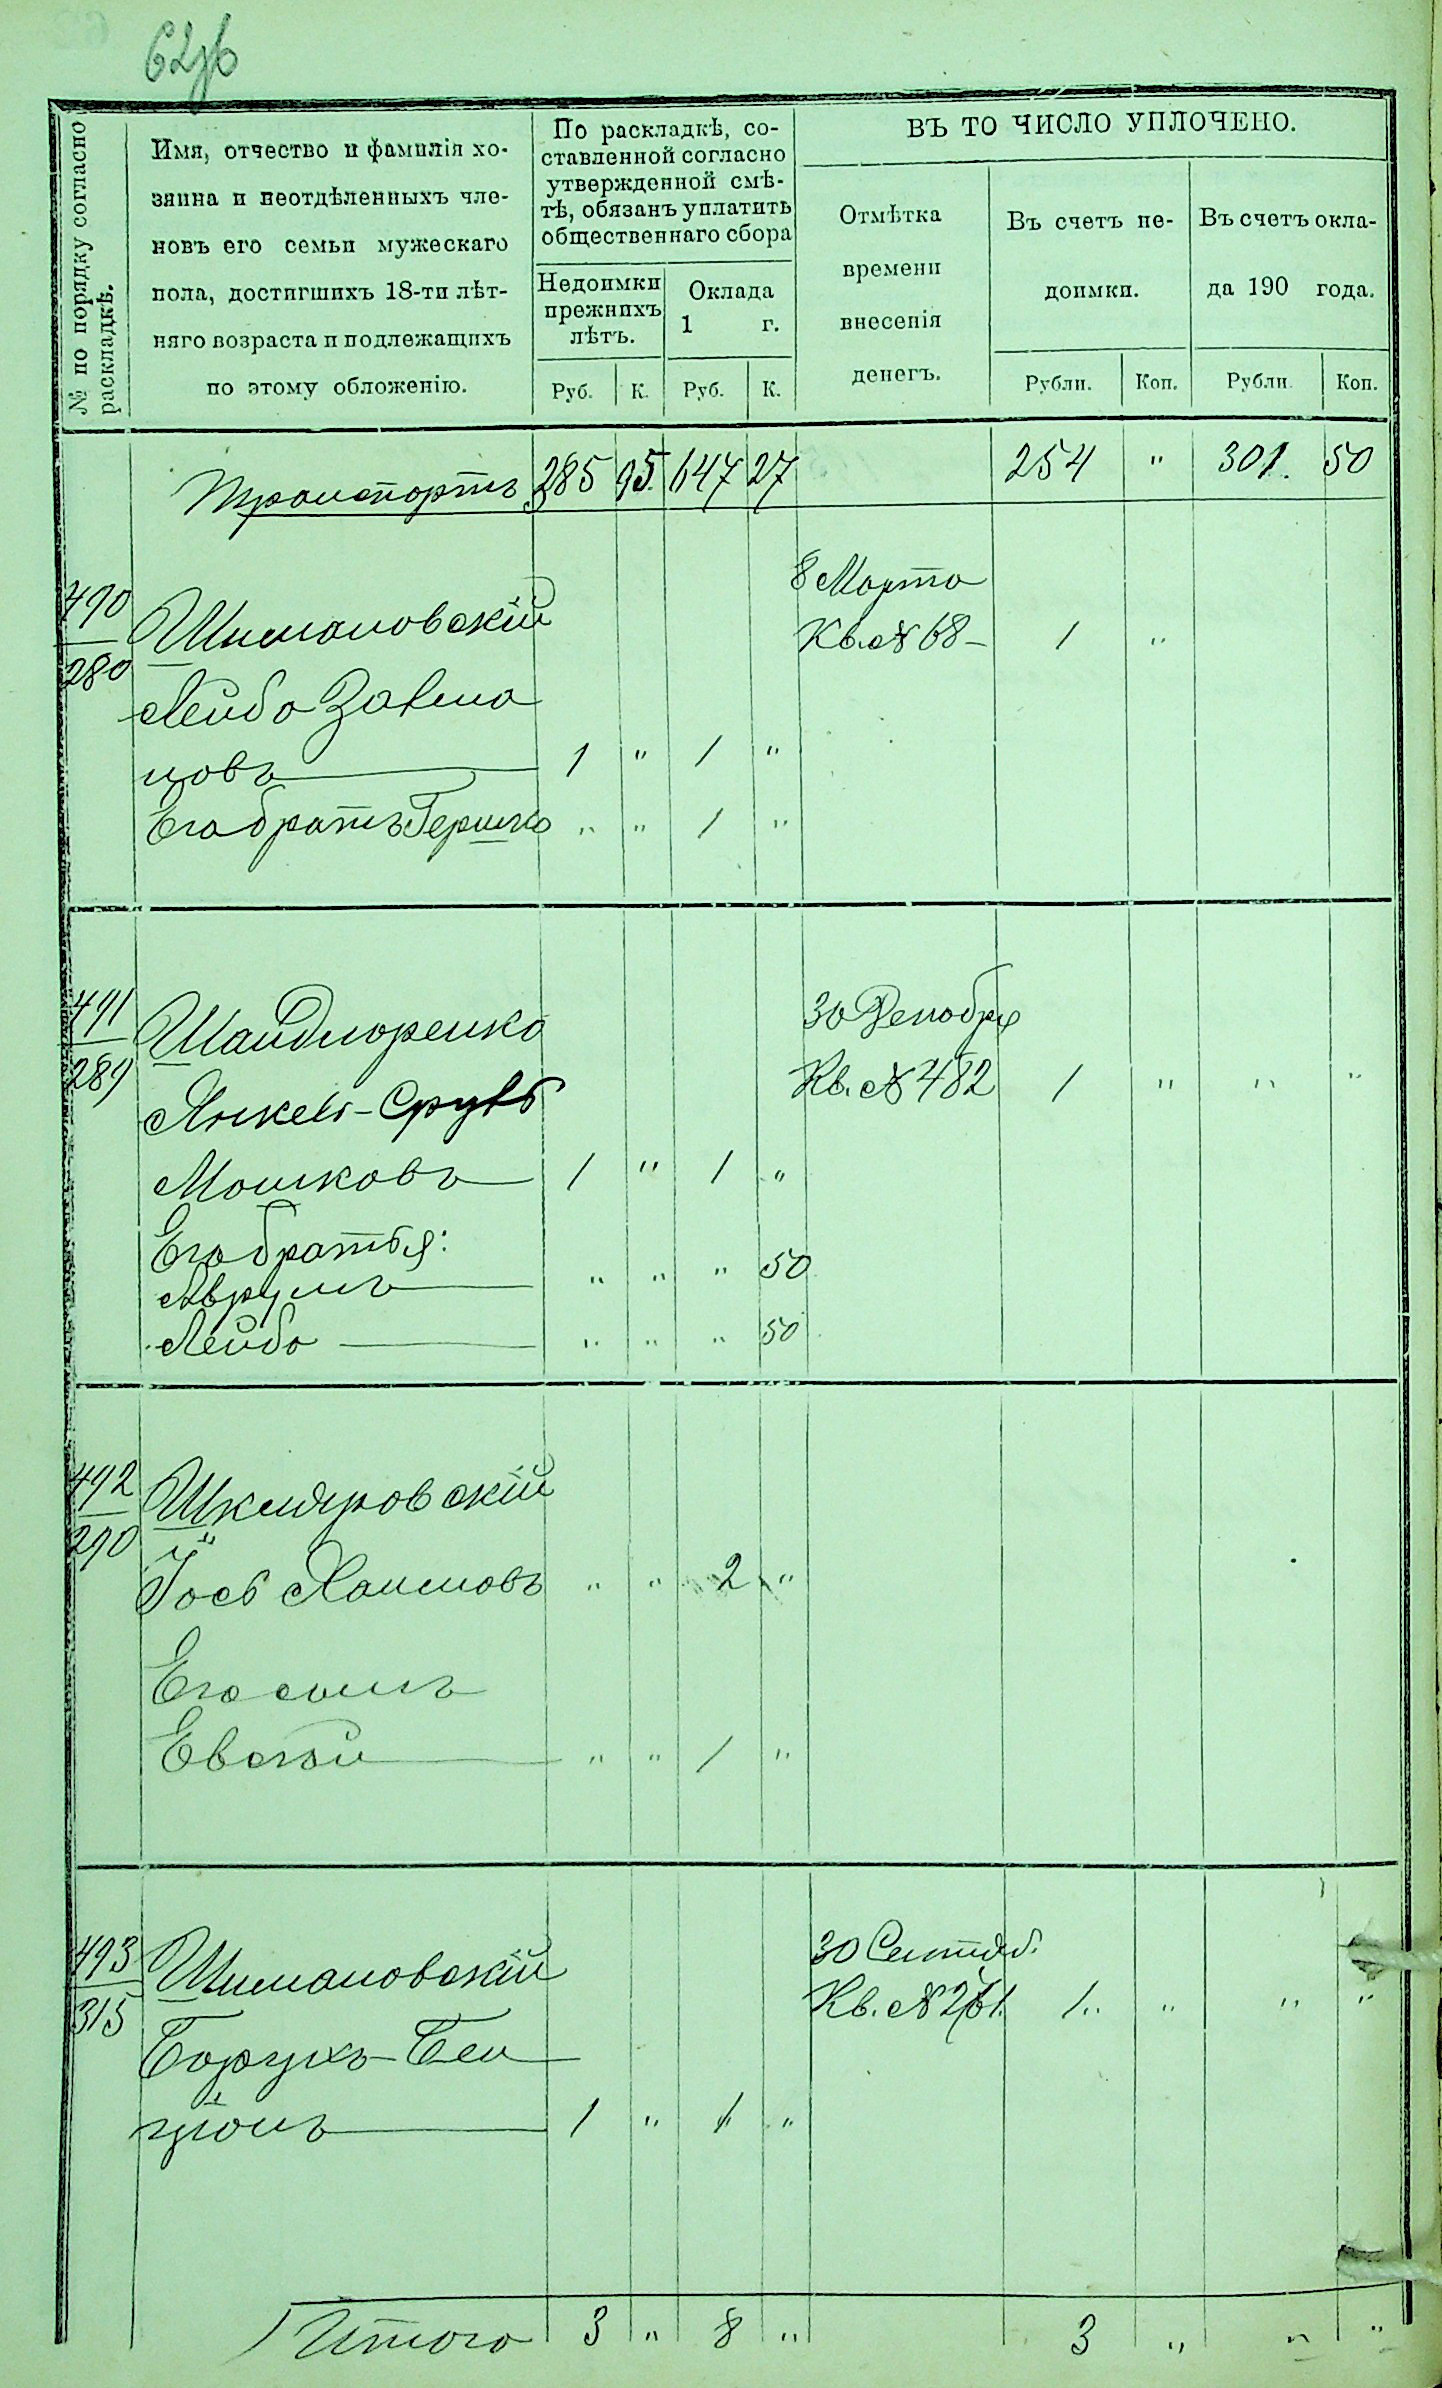 62об
№ по порядку согласно раскладкѣ.
Имя, отчество и фамилія хо-
зяина и неотдѣленныхъ чле-
новъ его семьи мужескаго
пола, достигшихъ 18-ти лѣт-
няго возраста и подлежащихъ
по этому обложенію.
По раскладкѣ, со-
ставленной согласно
утвержденной смѣ-
тѣ, обязанъ уплатить
общественнаго сбора
Недоимки
прежнихъ
лѣтъ.
Оклада
1 г.
Руб. К. Руб. К.
ВЪ ТО ЧИСЛО УПЛОЧЕНО.
Отмѣтка
времени
внесенія
денегъ.
Въ счетъ не-
доимки.
Въ счетъ окла-
да 190 года.
Рубли. Коп. Рубли. Коп.
Транспортъ 285 95. 647 27 254 " 301. 50
490
280
Шимановскій
8 Марта
Кв. № 68 – 1 "
Лейба Залма
новъ 1 " 1 "
Его братъ Гершко " " 1 "
491
289
Шандморенко
30 Декабря
Кв. № 482 1 " " "
Янкель-Сруль
Мошковъ 1 " 1 "
Его братья:
Аврумъ " " " 50
Лейба " " " 50
492
290
Шкляровскій
Іось Хаимовъ " " 2 "
Его сынъ
Евсѣй " " 1 "
493
315
Шимановскій
30 Сентяб.
Кв. № 261. 1. " " "
Борухъ-Бен
ціонъ 1 " 1 "
Итого 3 " 8 " 3 " " "